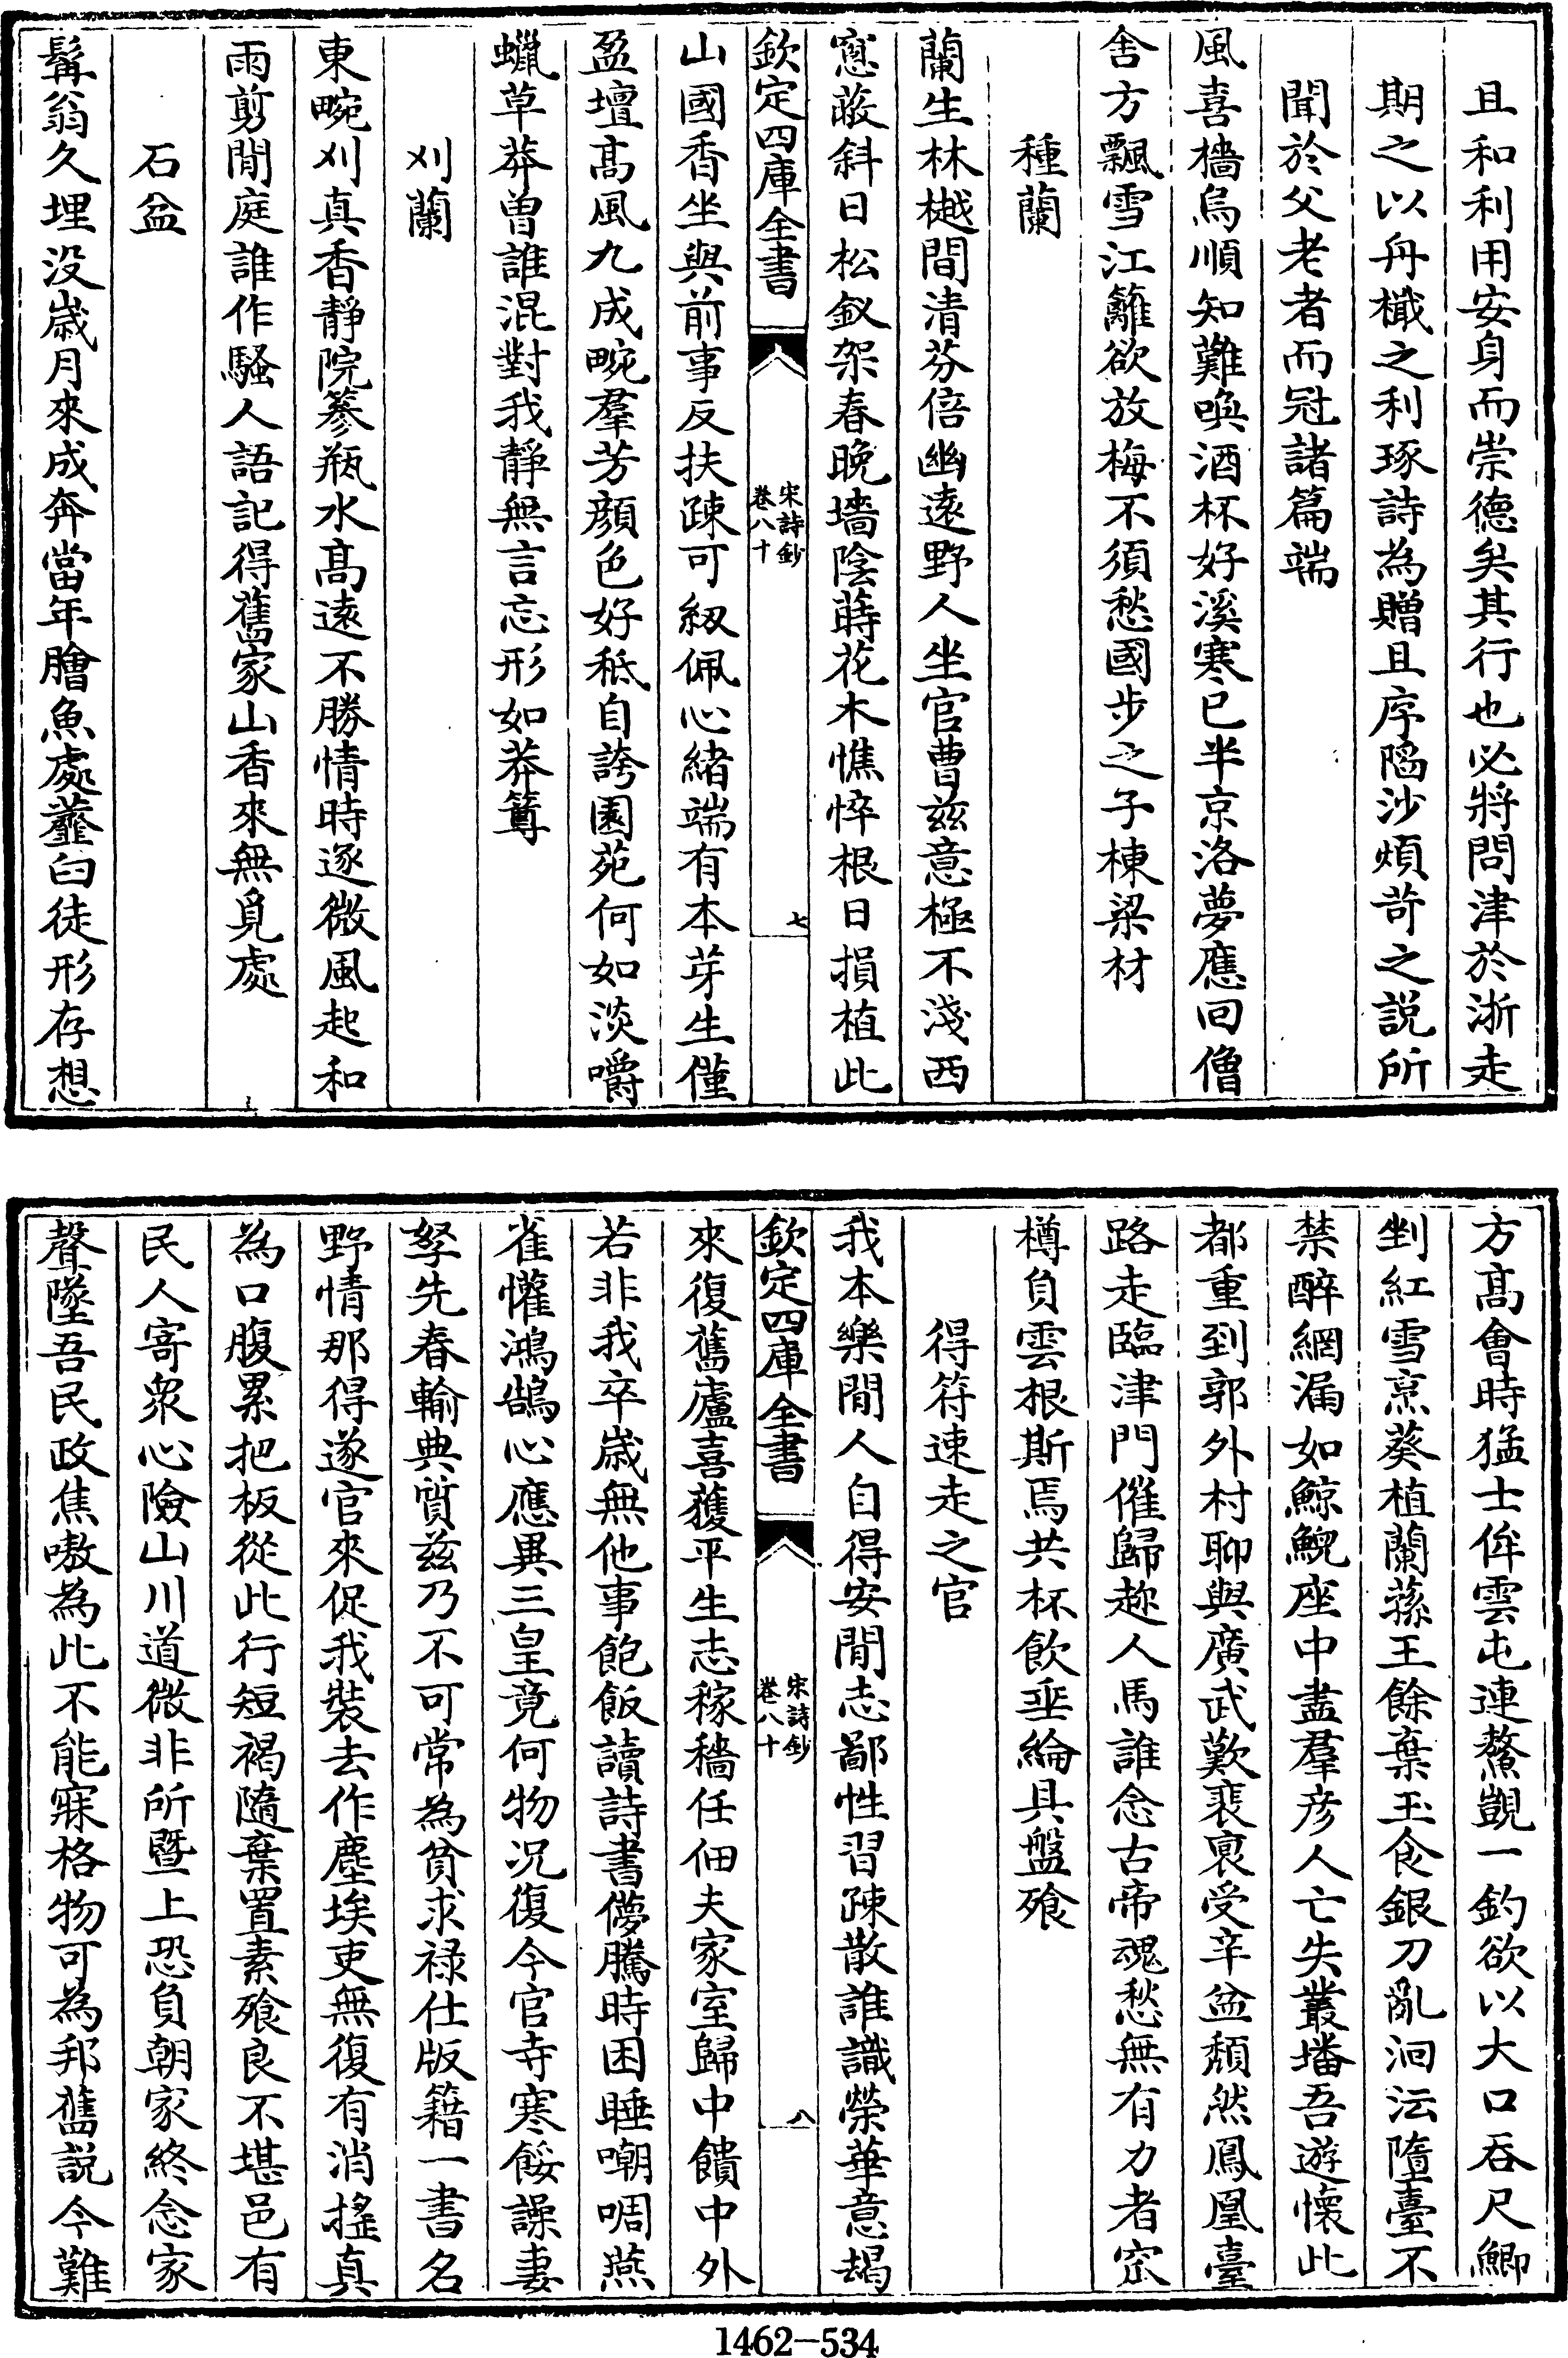 且和利用安身而崇德矣其行也必將問津於浙走
期之以舟檝之利琢詩為贈且序陷沙煩苛之説所
聞於父老者而冠諸篇端
風喜檣烏順知難喚酒杯好溪寒已半京洛夢應回僧
舍方飄雪江籬欲放梅不須愁國步之子棟梁材
種蘭
蘭生林樾間清芬倍幽遠野人坐官曹兹意極不淺西
窻蔽斜日松釵架春晚墻陰蒔花木憔悴根日損植此
欽定四庫全書
宋詩鈔
卷八十
七
山國香坐與前事反扶疎可紉佩心緒端有本芽生僅
盈壇髙風九成畹羣芳顔色好秪自誇園苑何如淡嚼
蠟草莽曽誰混對我靜無言忘形如莽篿
刈蘭
東畹刈真香靜院篸瓶水髙遠不勝情時逐微風起和
雨剪閒庭誰作騷人語記得舊家山香來無覓處
石盆
髯翁久埋没歲月來成奔當年膾魚處虀臼徒形存想
方髙會時猛士侔雲屯連鰲覬一釣欲以大口吞尺鯽
剉紅雪烹葵植蘭蓀王餘棄玉食銀刀亂洄沄墮臺不
禁醉網漏如鯨鯢座中盡羣彦人亡失叢墦吾遊懷此
都重到郭外村聊與廣武歎裴裏受辛盆頽然鳳凰臺
路走臨津門催歸趂人馬誰念古帝魂愁無有力者宻
樽負雲根斯焉共杯飲垂綸具盤飱
得符速走之官
我本樂閒人自得安閒志鄙性習疎散誰識榮華意朅
欽定四庫全書
宋詩鈔
卷八十
八
來復舊廬喜獲平生志稼穡任佃夫家室歸中饋中外
若非我卒歲無他事飽飯讀詩書儚騰時困睡嘲啁燕
雀懽鴻鵠心應異三皇竟何物況復今官寺寒餒譟妻
孥先春輸典質兹乃不可常為貧求禄仕版籍一書名
野情那得遂官來促我裝去作塵埃吏無復有消揺真
為口腹累把板從此行短褐隨棄置素飱良不堪邑有
民人寄衆心險山川道微非所暨上恐負朝家終念家
聲墜吾民政焦嗷為此不能寐格物可為邦舊説今難
1462-534